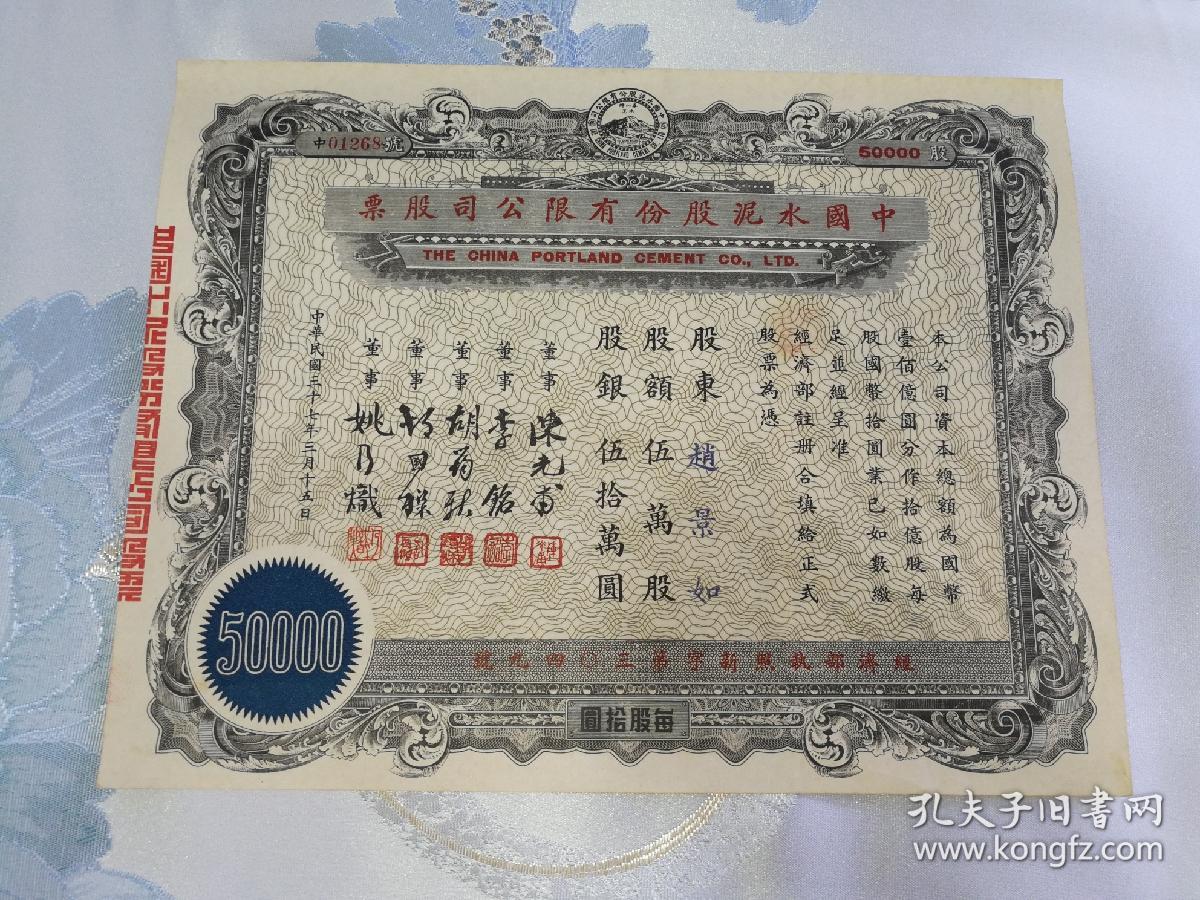 中01268號
50000 股
中國水泥股份有限公司股票
THE CHINA PORTLAND CEMENT CO., LTD.
本公司資本總額為國幣
壹佰億圓分作拾億股每
股國幣拾圓業已如數繳
足並經呈准
經濟部註册合填給正式
股票為憑
股東 趙景如
股額伍萬股
股銀伍拾萬圓
董事 陳光甫
董事 李銘
董事 胡筠秋
董事
董事 姚乃熾
中華民國三十七年三月十五日
50000
經濟部執照新字第三〇四九號
每股拾圓
孔夫子旧书网
www.kongfz.com